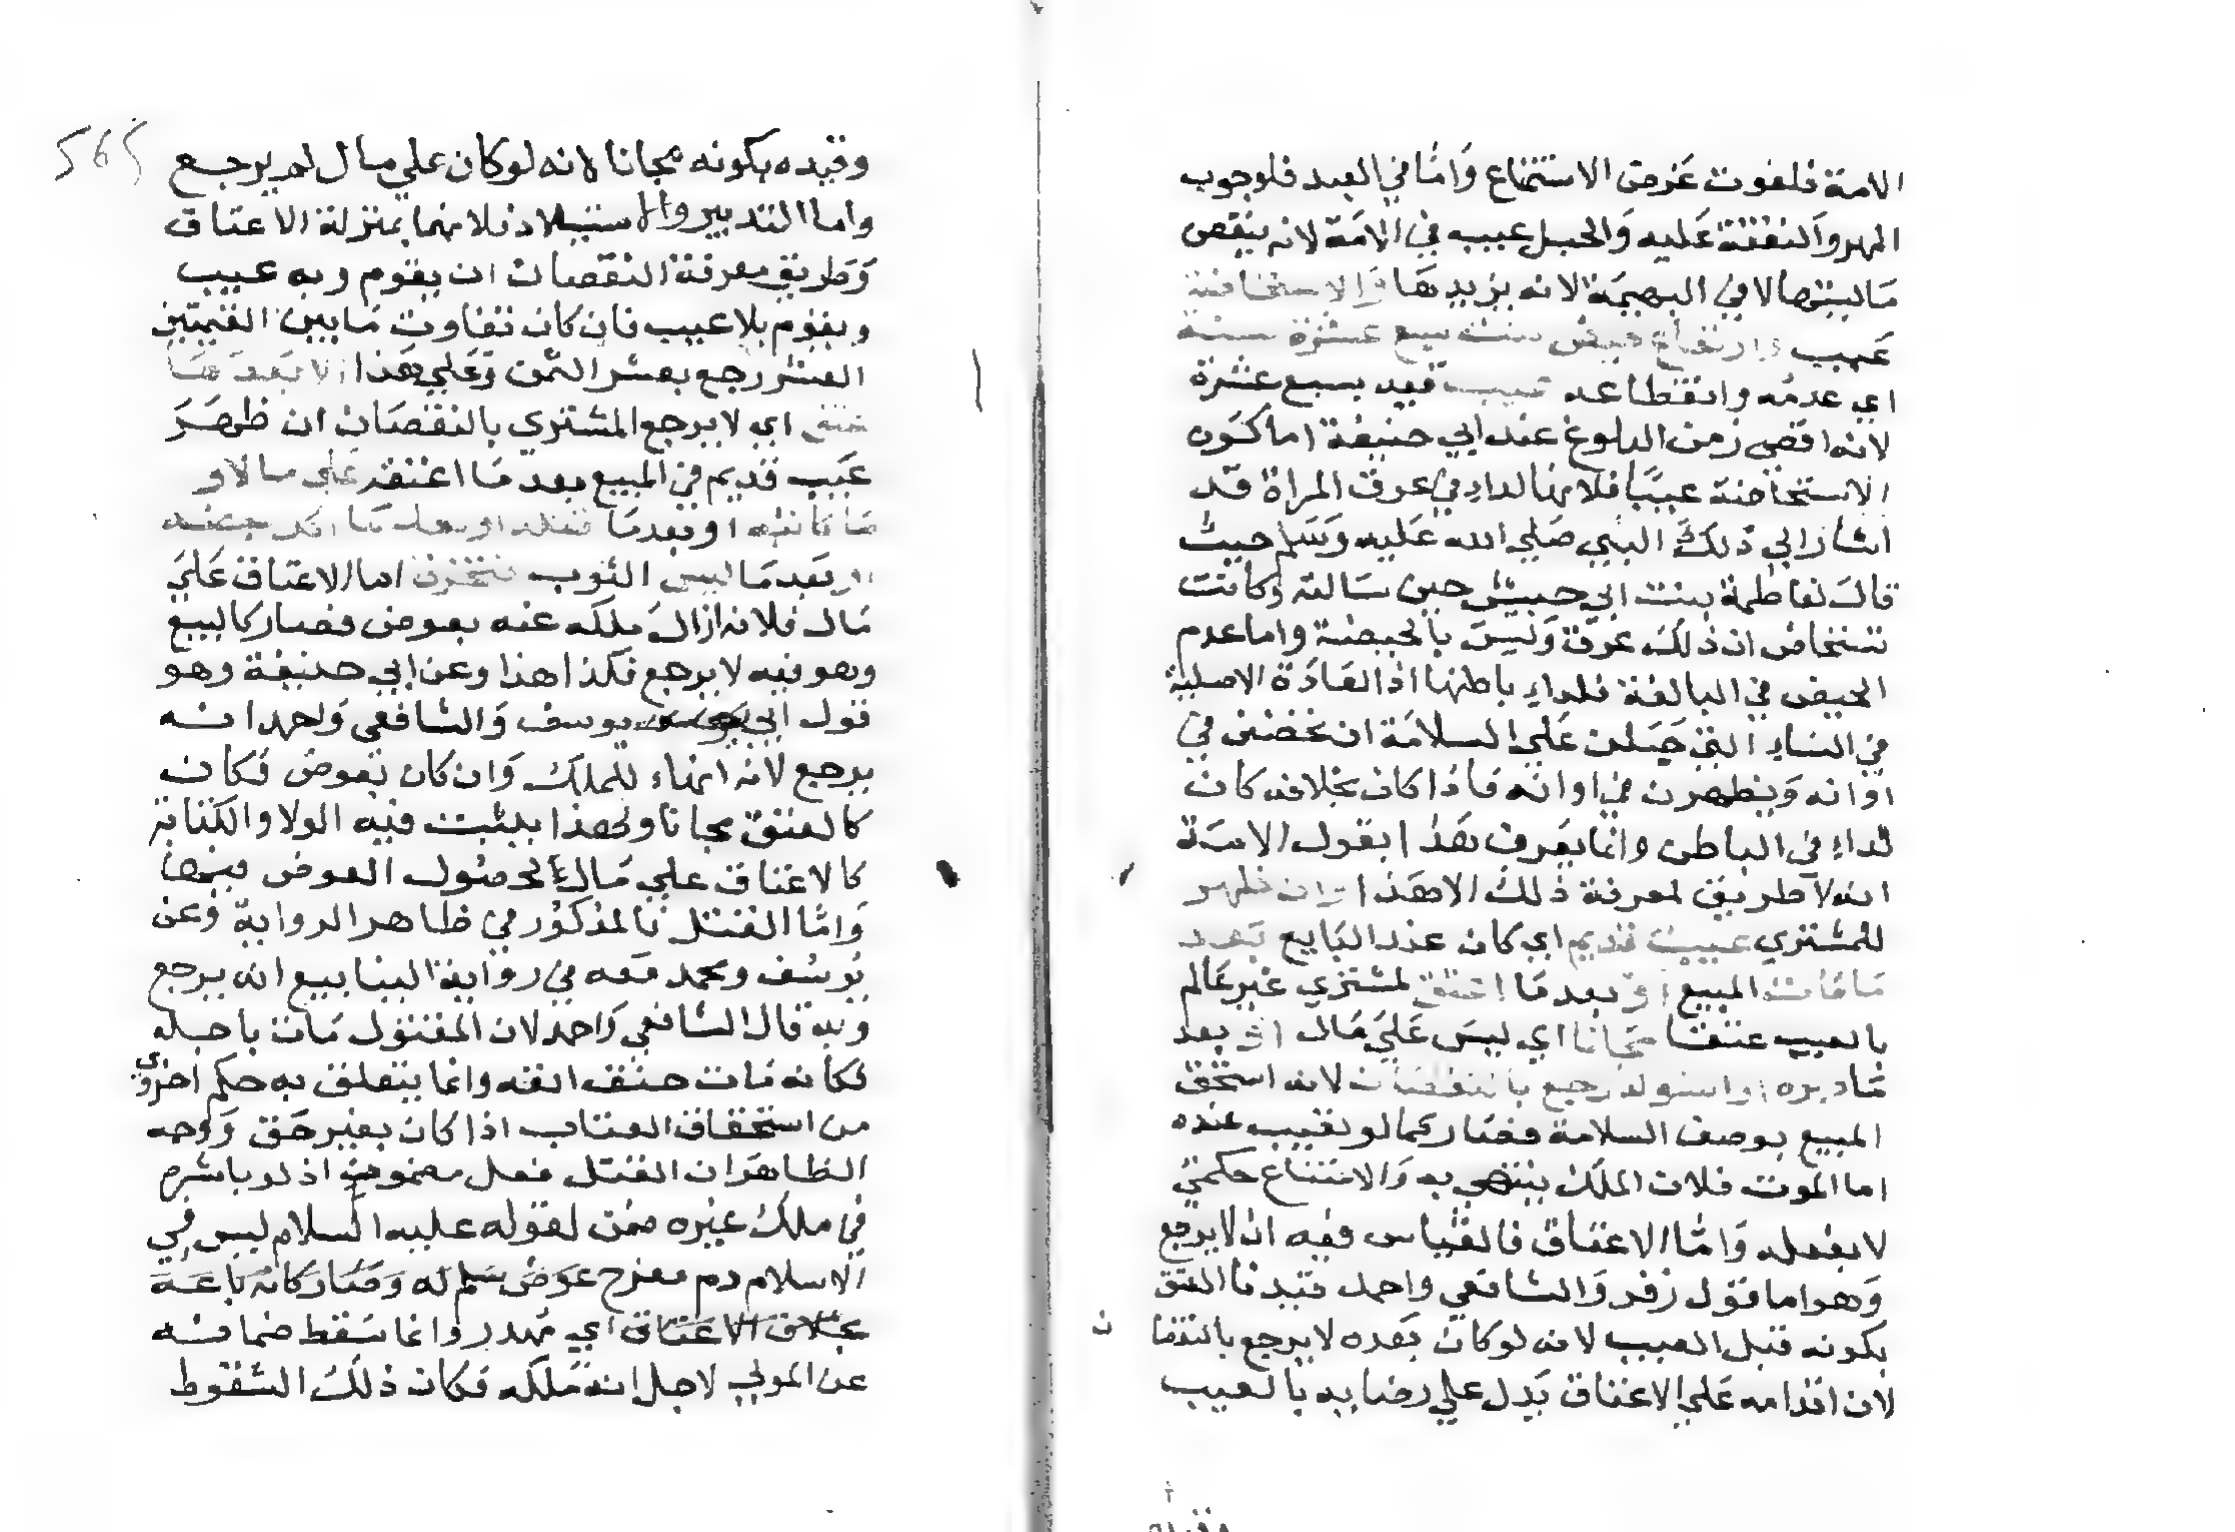 الامة فلفوت غرض الاستمتاع وَامّا في العبد فلوجوب
المهر والنفقة عَليه وَالحبل عيب في الامَة لانه ينقص
مَاليتها لا في البهيمَة لانه يزيدهَا وَالاستحاضة
عَيب وارتفاع حيض بنت سبع عشرة سنة
اي عدمُه وانقطاعه عيب قيد بسبع عشرة
لانه اقصى زمن البلوغ عند ابي حنيفة اما كَون
الاستحاضة عيبًا فلانها لداء في عرق المراة قد
اشار الي ذلكَ النبي صَلي الله عَليه وَسَلم حيث
قالَ لفاطمة بنت ابي حبيش حين سَالته وَكانت
تستحاض ان ذلكَ عرق وَليسَ بالحيضة واما عدم
الحيض في البالغة فلداءٍ باطنها اذ العَادَة الاصلية
في النسَاء التي جبلن عَلي السلامَة ان يحضن في
اوانه وَيطهرن في اوانه فاذا كان بخلافه كان
لداءٍ في الباطن وانما يعَرف هَذا بقول الامَة
انه لا طريق لمعرفة ذلك الا هَذا وان ظهر
للمشتري عيب قديم اي كان عند البايع بَعد
مَا مَات المبيع اوْ بعد مَا اعتق لمشتري غير عَالم
بالعيب عتقا مجانا اي ليسَ عَليَ مَال اوْ بعد
مَا دبره او استولد رجع بالنقصَان لانه استحق
المبيع بوصف السلامة فصَار كما لو تعيب عنده
اما الموت فلان الملك ينتهي به وَالامتناع حكمي
لا بفعله وَامّا الاعتاق فالقياس فيه ان لا يرجع
وَهو اما قول زفر وَالشافعي واحمد قيدنا العتق
بكونه قبل العيب لانه لو كان بَعده لا يرجع بالنقصا
ن
لان اقدامه عَلي الاعتاق يَدل علي رضايه بالعيب
وقيده
565
وقيده بكونه مجانا لانه لو كان علي مال لم يرجع
واما التدبير والاستيلاد فلانهما بمنزلة الاعتاق
وَطريق معرفة النقصان ان يقوم وبه عيب
ويقوم بلا عيب فان كان تفاوت مَا بين القيمتين
العشر رجع بعشر الثمن وَعَلي هَذا الا بَعد مَا
عتق اي لا يرجع المشتري بالنقصَان ان ظهَرَ
عَيب قديم في المبيع بعد مَا اعتقه عَلي مالٍ او
مَا كاتبه او بَعد مَا قتله او بعد مَا اكل بعضه
او بَعد مَا لبس الثوب فتخرق اما الاعتاق عَليَ
مَال فلانه ازال مُلكَه عنه بعوض فصار كالبيع
وهو فيه لا يرجع فكذا هذا وعن ابي حنيفة وهو
قول ابي يوسف وَالشافعي وَاحمد انه
يرجع لانه انهاء للملك وَان كان بعوض فكان
كالعتق مجانا ولهذا يثبت فيه الولا والكتابة
كالاعتاق علي مَال لحصُول العوض فيها
وَامّا القتل فالمذكُور في ظاهر الرواية وَعن
يُوسُف ومحمد مَعه في رواية الينابيع انه يرجع
وبه قال الشافعي وَاحمد لان المقتول مَات باجله
فكانه مَات حتف انفه وانما يتعلق به حكم اخروي
من استحقاق العتاب اذا كان بغير حَق وَوجه
الظاهَر ان القتل فعل مضمون اذ لو باشره
في ملك غيره ضمن لقوله عليه السلام ليس في
الاسلام دم مفرح عوَض سَلم له وَصَار كانه باعَهَ
بخلاف الاعتاق اي مُهدر وانما سَقط ضمانه
عن المولي لاجل انه مَلكه فكان ذلك السقوط